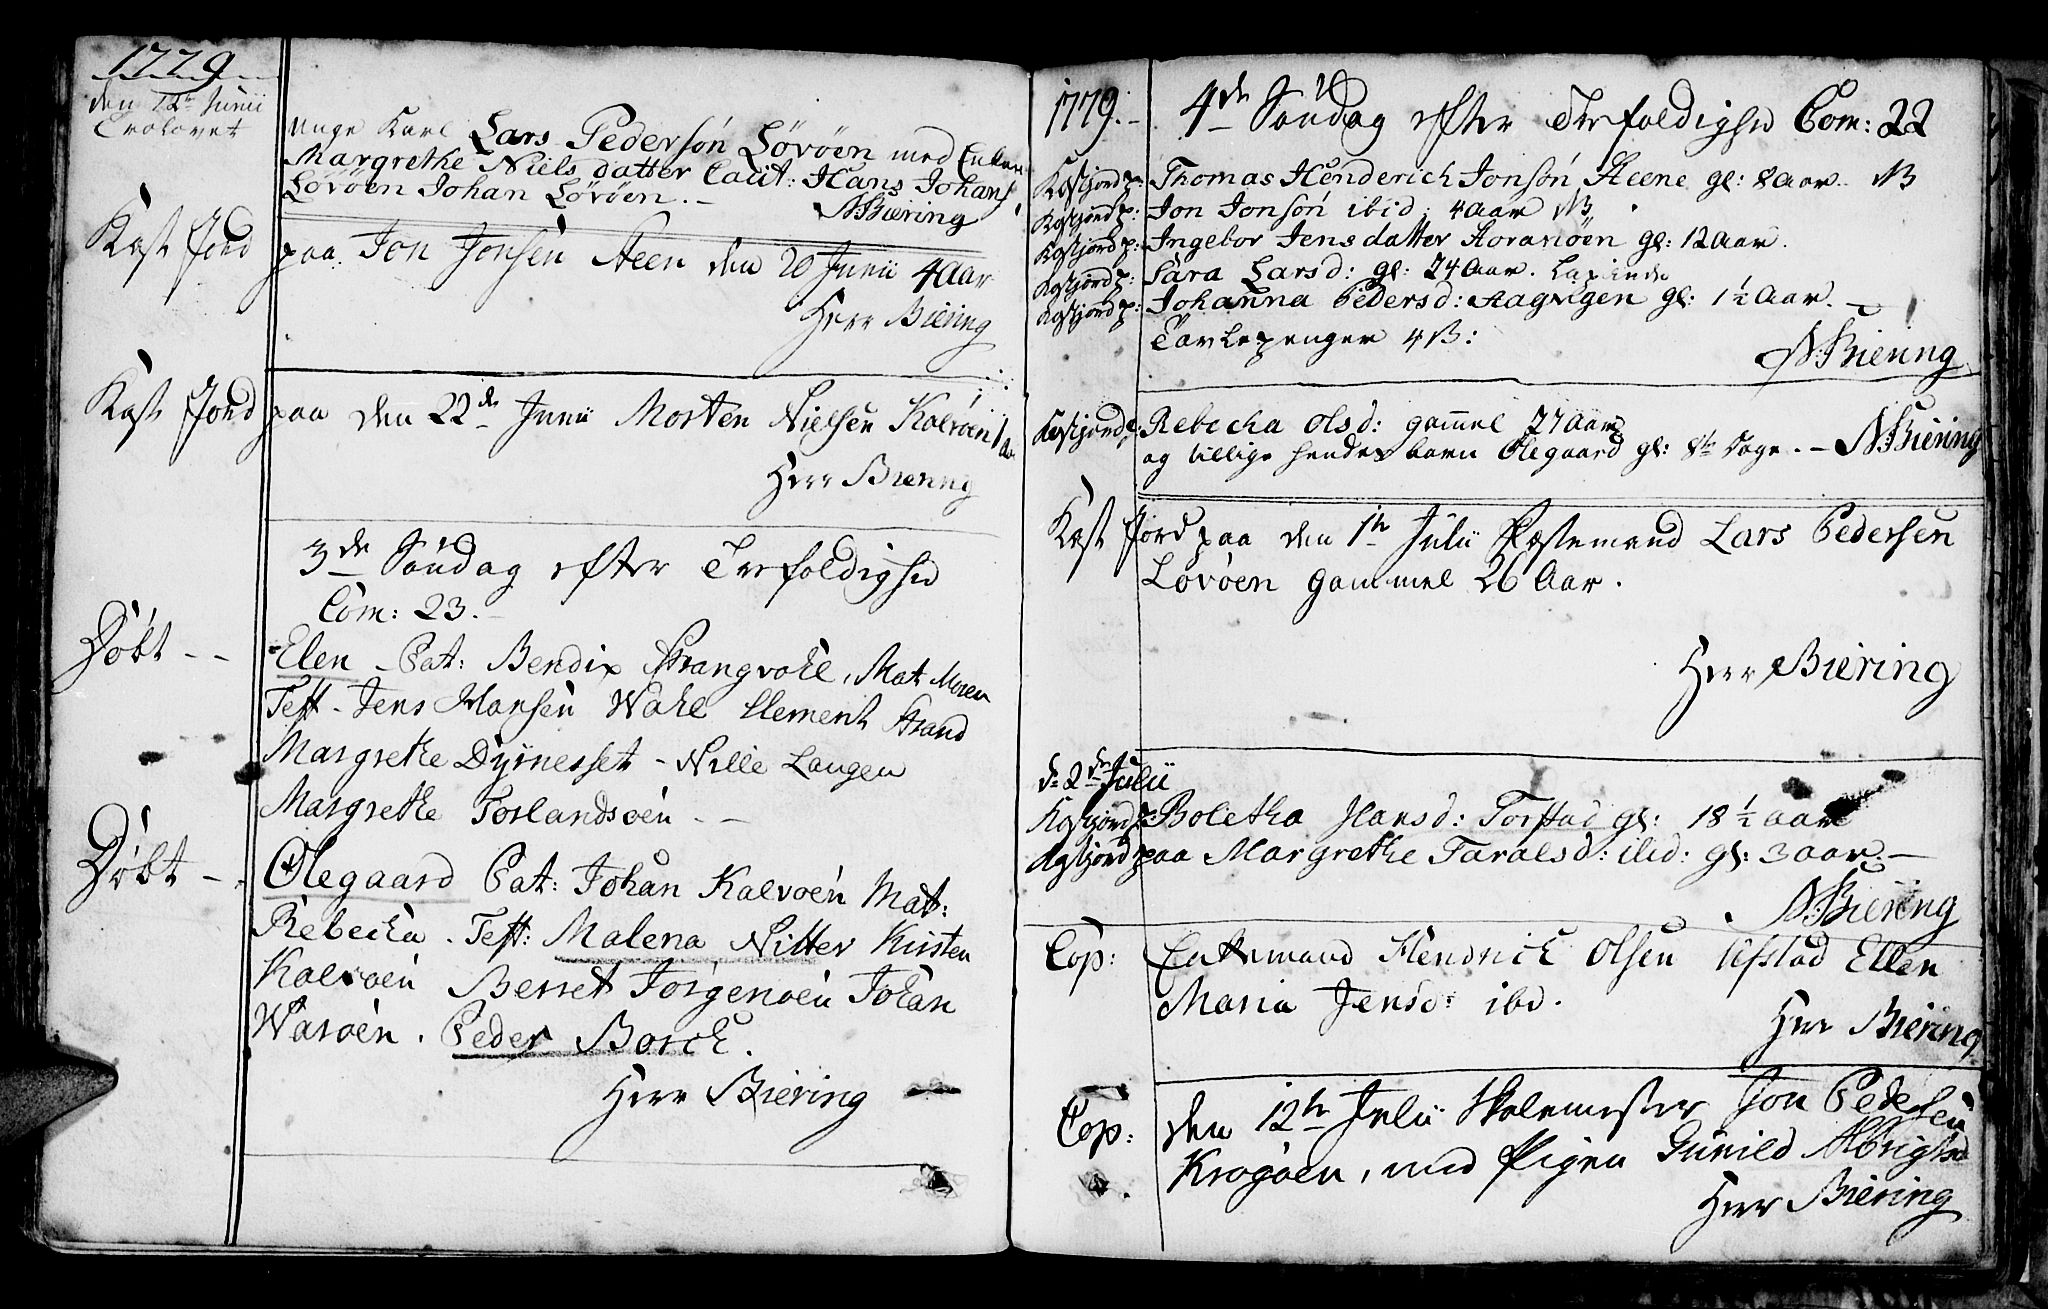 1779
den 12te Junii
Trolovet
Unge Karl Lars Pedersøn Løvøen med Enken
Margrethe Niels datter Caut: Hans Johans:
Løvøen Johan Løvøen. –
N Biering
Kast Jord paa Jon Jonsen Steen den 20 Junii 4 Aar
Herr Biering
Kast Jord paa den 22de Junii Morten Nielsen Kalvøen 1 Aar
Herr Biering
3de Søndag efter Trefoldighed
Com: 23. –
Døbt – – Elen – Pat: Bendix Strangvokl, Mat Maren
Test – Jens Hansen Wahl Clement Strand
Margrethe Dyrnesset – Nille Langen
Margrethe Torlandsøen – –
Døbt – . Olegaard Pat: Johan Kalvøen Mat:
Rebecka . Test: Malena Nitter Kirsten
Kalvøen Berret Jørgenøen Johan
Warøen . Peder Borck.
Herr Biering
1779. –
4de Søndag efter Trefoldighed Com: 22
Kastjord p: Thomas Henderich Jonsøn Steene gl: 8 Aar. NB
Kastjord p: Jon Jonsøn ibid: 4 Aar NB
Kastjord p: Ingebor Jens datter gl: 12 Aar.
Kastjord p: Sara Larsd: gl: 24 Aar. Lapinde
Kastjord p: Johanna Pedersd: Aagvigen gl: 1½ Aar. –
Tavlepenger 4 ß:
N: Biering
Kastjord p: Rebecka Olsd: gammel 27 Aar
og tillige hendes barn Olegaard gl: 8te Dage. – N Biering
Kast Jord paa den 1te Julii Ægtemand Lars Pedersen
Løvøen gammel 26 Aar.
Herr Biering
d: 2de Julii
Kastjord p: Boletha Hansd: Torstad gl: 18½ aar
Kastjord paa Margrethe Taralsd: ibid: gl: 3 aar. –
N: Biering
Cop: Enkemand Hendrick Olsen Ufstad Ellen
Maria Jensd: ibd.
Herr Biering
Cop: den 12te Julii Skolemester Jon Pedersen
Krogøen, med Pigen Gunild Albrigtsd
Herr Biering